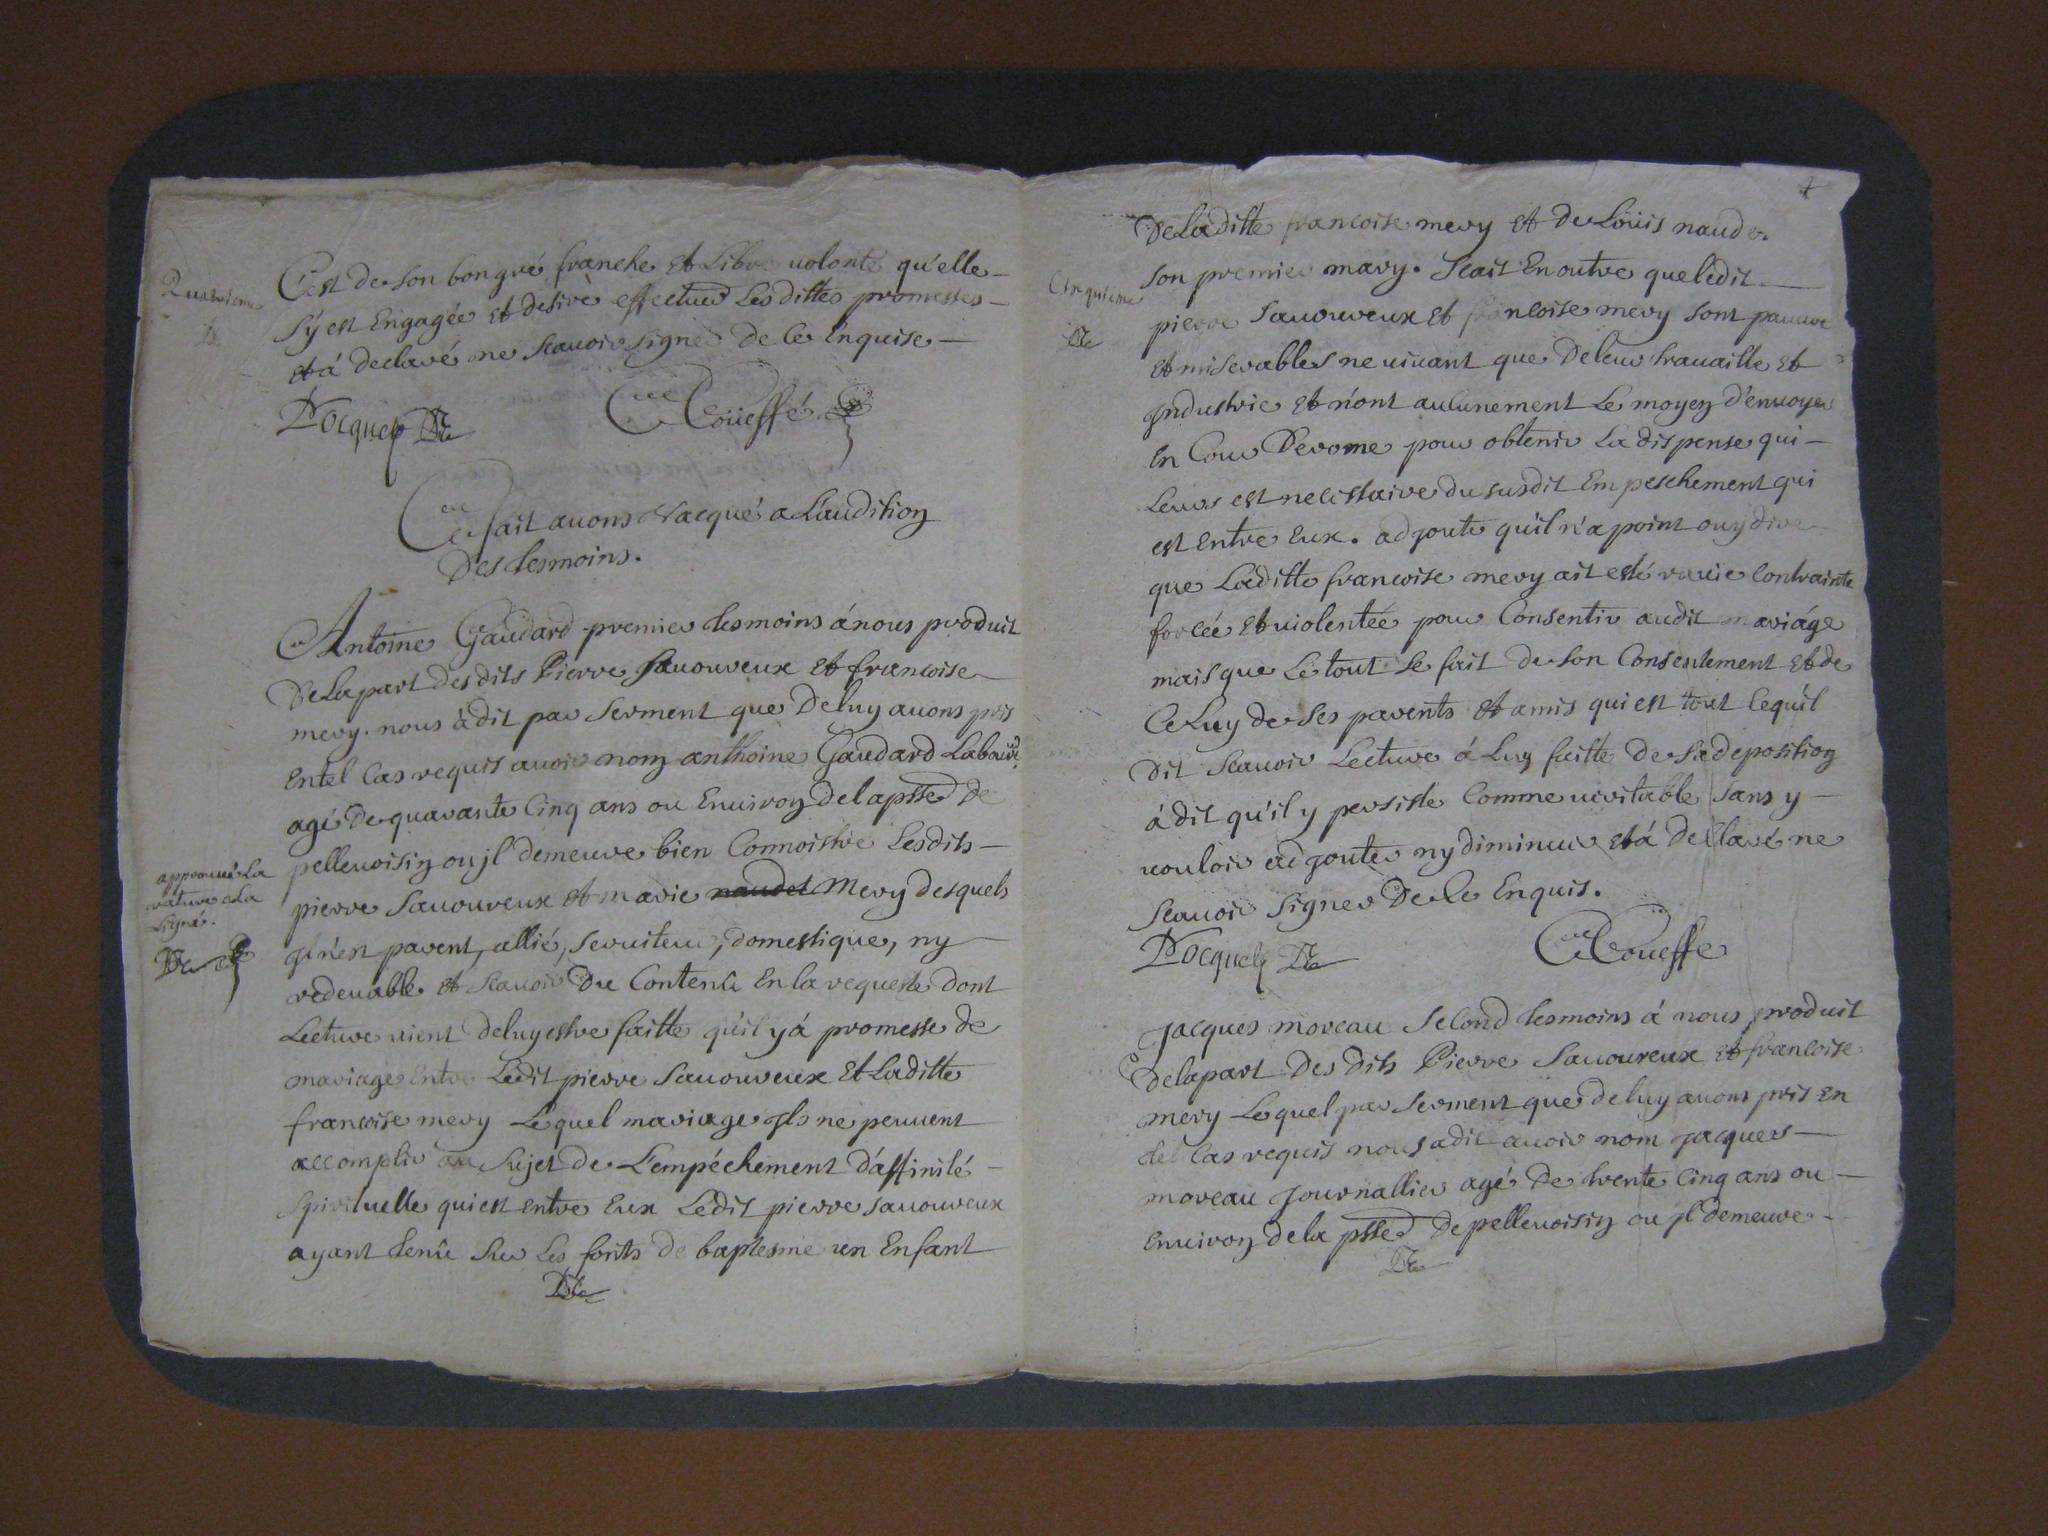 Quatrieme
C'est de son bon gré franche et libre uolonté qu'elle
s'y est Engagée et desire effectuer les dittes promesses
et á declaré ne scauoir signer de ce Enquise
Pocquet
Coüeffé
Ce fait auons vacqué a L'audition
Des tesmoins.
Antoine Gaudard premier tesmoins á nous produit
De la part des dits Pierre Sauoureux et francoise
mery. nous à dit par serment que De luy auons pris
En tel cas requis auoir nom anthoine Gaudard
agé De quarante cinq ans ou Enuiron de la psse De
pelleuoisin ou jl demeure bien Connoistre Lesdits
pierre Sauoureux et marie naudet Mery desquels
approuué La
rature a La
Ligne.
jl n'est parent, allié, seruiteur, domestique, ny
redeuable et scauoir Du Contenû En la requeste dont
Lecture uient de luy estre faitte qu'il y á promesse de
mariage Entre Ledit pierre Sauoureux Et Laditte
francoise mery Lequel mariage jls ne peuuent
accomplir au Sujet de L'empéchement d'affinité
spirituelle qui est entre Eux Ledit pierre sauoureux
ayant tenû sur Les fonts de baptesme un Enfant
De Laditte francoise mery et de Loüis naudet
son premier mary. Scait En outre que ledit
Cinquieme
pierre Sauoureux et francoise mery sont pauure
et miserables ne uiuant que De leur trauaille et
jndustrie et n'ont aucunement Le moyen d'enuoyer
En Cour De rome pour obtenir La dispense qui
Leurs est necessaire du susdit Empeschement qui
est Entre Eux. adjoute qu'il n'a point ouy dire
que Laditte francoise mery ait esté rauie Contrainte
forcée et uiolentée pour Consentir audit mariáge
mais que Le tout se fait de son Consentement et de
Celuy de ses parents et amis qui est tout ce qu'il
Dit scauoir Lecture á Luy faitte De sa deposition
á dit qu'il y persiste Comme ueritable sans y
uouloir adjouter ny diminuer et á Declaré ne
scauoir signer De ce Enquis.
Pocquet
Coueffé
Jacques moreau Second tesmoins á nous produit
de la part Des dits Pierre Sauoureux et francoise
mery Lequel par serment que de luy auons pris En
tel cas requis nous a dit auoir nom jacques
moreau journallier agé De trente Cinq ans ou
Enuiron de la psse De pelleuoisin ou jl demeure